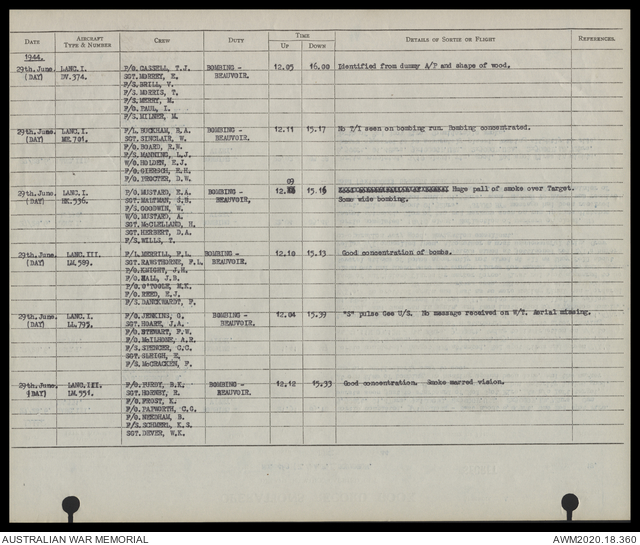 DATE AIRCRAFT TYPE & NUMBER CREW DUTY TIME UP DOWN DETAILS OF SORTIE OR FLIGHT REFERENCES.
1944.
29th.June. LANC.I. P/O. CASSELL, T.J. BOMBING - 12.05 16.00 Identified from dummy A/P and shape of wood.
(DAY) DV.374. SGT. E. BEAUVOIR.
F/S. BRILL, V.
F/S. MORRIS, T.
F/S. MERRY, M.
P/O. PAUL, I.
F/S. MILNER, M.
29th.June. LANC.I. F/L. HUCKHAM, R.A. BOMBING - 12.11 15.17 No T/I seen on bombing run. Bombing concentrated.
(DAY) ME.701. SGT. SINCLAIR, W. BEAUVOIR.
P/O. BOARD, R.W.
F/S. MANNING, L.J.
W/O. HOLDEN, E.J.
P/O. GIERSCH, E.H.
F/O. PROCTER, D.W.
09
29th.June. LANC.I. P/O. MUSTARD, E.A. BOMBING - 12. 15.16 Huge pall of smoke over Target.
(DAY) 536. SGT. MALTMAN, S.H. BEAUVOIR. Some wide bombing.
F/S. GOODWIN, W.
W/O. MUSTARD, A.
SGT. McCLELLAND, H.
SGT. HERBERT, D.A.
F/S. WILLS, T.
29th.June. LANC.III. F/L. MERRILL, P.L. BOMBING - 12.10 15.13 Good concentration of bombs.
(DAY) LM.589. SGT. RAWSTHORNE, F.L. BEAUVOIR.
F/O. KNIGHT, J.H.
F/O. HALL, J.B.
P/O. O'TOOLE, M.K.
F/O. REED, E.J.
F/S. DANCKHARDT, F.
29th.June. LANC.I. F/O. JENKINS, G. BOMBING - 12.04 15.39 "S" pulse Gee U/S. No message received on W/T. Aerial missing.
(DAY) LL.795. SGT. HOARE, J.A. BEAUVOIR.
P/O. STEWART, F.W.
F/O. McILHONE, A.R.
F/S. SPENCER, C.C.
SGT. SLEIGH, E.
F/S. McCRACKEN, F.
29th.June. LANC.III. F/O. PURDY, B.K. BOMBING - 12.12 15.33 Good concentration. Smoke marred vision.
(DAY) LM.551. SGT. HORNBY, R. BEAUVOIR.
F/O. FROST, K.
F/O. PAPWORTH, C.G.
F/O. NEEDHAM, B.
F/S. SCHMERL, K.S.
SGT. DEVER, W.K.
AUSTRALIAN WAR MEMORIAL AWM2020.18.360